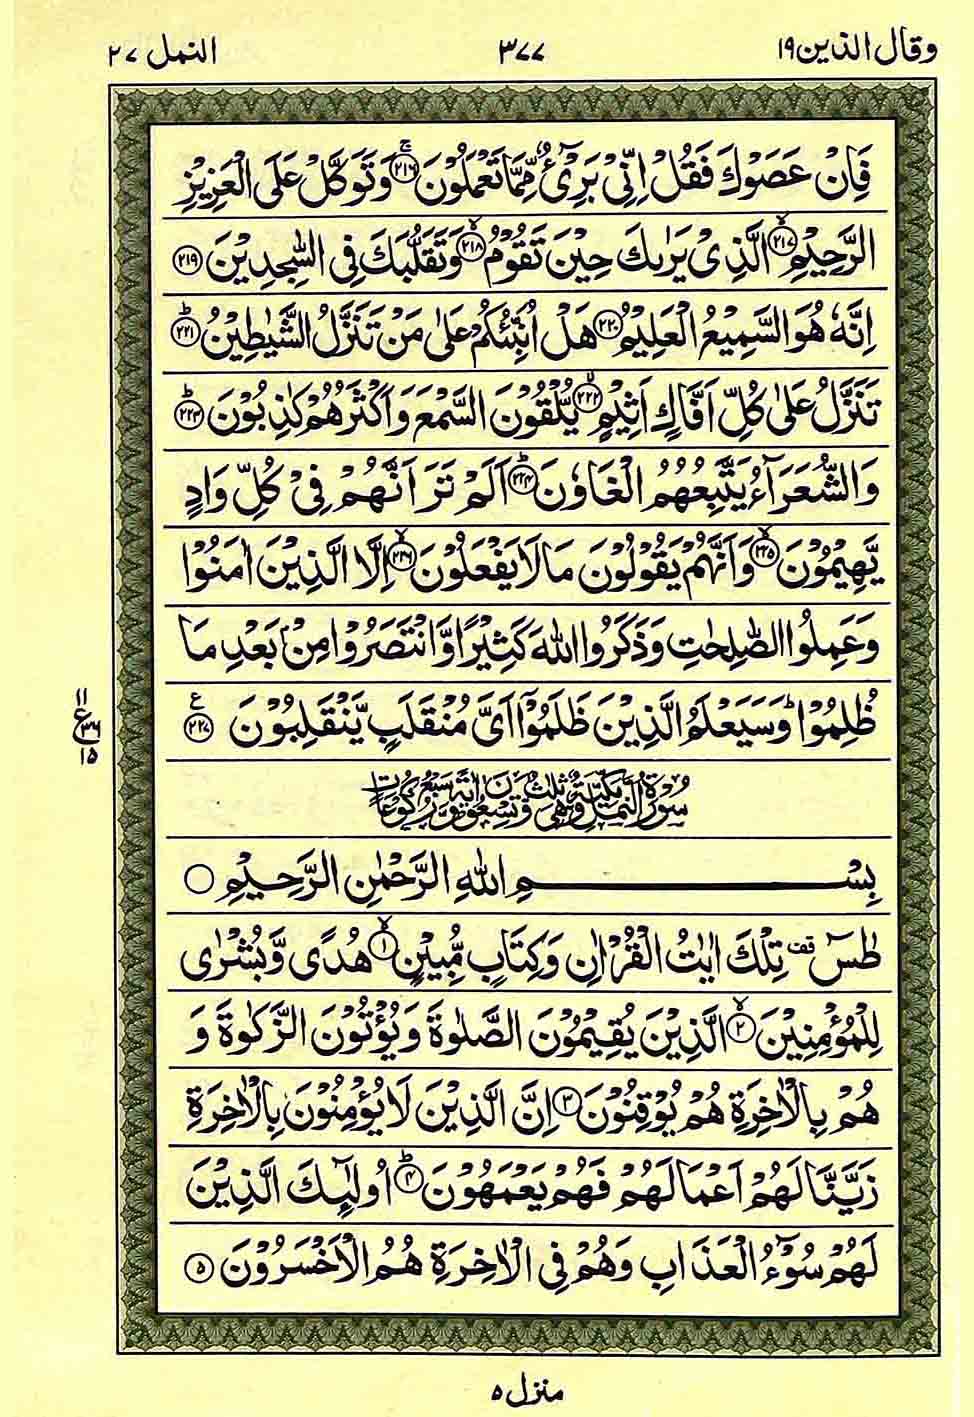 وقال الذين ١٩ ٣٧٧ النمل ٢٧
فَاِنْ عَصَوْكَ فَقُلْ اِنِّیْ بَرِیْٓءٌ مِّمَّا تَعْمَلُوْنَ ﴿٢١٦﴾ۚ وَتَوَكَّلْ عَلَی الْعَزِیْزِ
الرَّحِیْمِ ﴿٢١٧﴾ۙ الَّذِیْ یَرٰىكَ حِیْنَ تَقُوْمُ ﴿٢١٨﴾ۙ وَتَقَلُّبَكَ فِی السّٰجِدِیْنَ ﴿٢١٩﴾
اِنَّهٗ هُوَ السَّمِیْعُ الْعَلِیْمُ ﴿٢٢٠﴾ هَلْ اُنَبِّئُكُمْ عَلٰی مَنْ تَنَزَّلُ الشَّیٰطِیْنُ ﴿٢٢١﴾ؕ
تَنَزَّلُ عَلٰی كُلِّ اَفَّاكٍ اَثِیْمٍ ﴿٢٢٢﴾ۙ یُّلْقُوْنَ السَّمْعَ وَاَكْثَرُهُمْ كٰذِبُوْنَ ﴿٢٢٣﴾ؕ
وَالشُّعَرَآءُ یَتَّبِعُهُمُ الْغَاوٗنَ ﴿٢٢٤﴾ؕ اَلَمْ تَرَ اَنَّهُمْ فِیْ كُلِّ وَادٍ
یَّهِیْمُوْنَ ﴿٢٢٥﴾ۙ وَاَنَّهُمْ یَقُوْلُوْنَ مَا لَا یَفْعَلُوْنَ ﴿٢٢٦﴾ۙ اِلَّا الَّذِیْنَ اٰمَنُوْا
وَعَمِلُوا الصّٰلِحٰتِ وَذَكَرُوا اللّٰهَ كَثِیْرًا وَّانْتَصَرُوْا مِنْۢ بَعْدِ مَا
ظُلِمُوْا ؕ وَسَیَعْلَمُ الَّذِیْنَ ظَلَمُوْۤا اَیَّ مُنْقَلَبٍ یَّنْقَلِبُوْنَ ﴿٢٢٧﴾ ع
١١
ع ٣٦
١٥
سُوْرَةُ النَّمْلِ مَكِّیَّةٌ وَّهِیَ ثَلٰثٌ وَّتِسْعُوْنَ اٰیَةً وَّسَبْعُ رُكُوْعَاتٍ
بِسْمِ اللّٰهِ الرَّحْمٰنِ الرَّحِیْمِ ○
طٰسٓ قف تِلْكَ اٰیٰتُ الْقُرْاٰنِ وَكِتَابٍ مُّبِیْنٍ ﴿١﴾ۙ هُدًی وَّبُشْرٰی
لِلْمُؤْمِنِیْنَ ﴿٢﴾ۙ الَّذِیْنَ یُقِیْمُوْنَ الصَّلٰوةَ وَیُؤْتُوْنَ الزَّكٰوةَ وَ
هُمْ بِالْاٰخِرَةِ هُمْ یُوْقِنُوْنَ ﴿٣﴾ اِنَّ الَّذِیْنَ لَا یُؤْمِنُوْنَ بِالْاٰخِرَةِ
زَیَّنَّا لَهُمْ اَعْمَالَهُمْ فَهُمْ یَعْمَهُوْنَ ﴿٤﴾ؕ اُولٰٓىِٕكَ الَّذِیْنَ
لَهُمْ سُوْٓءُ الْعَذَابِ وَهُمْ فِی الْاٰخِرَةِ هُمُ الْاَخْسَرُوْنَ ﴿٥﴾
منزل ٥